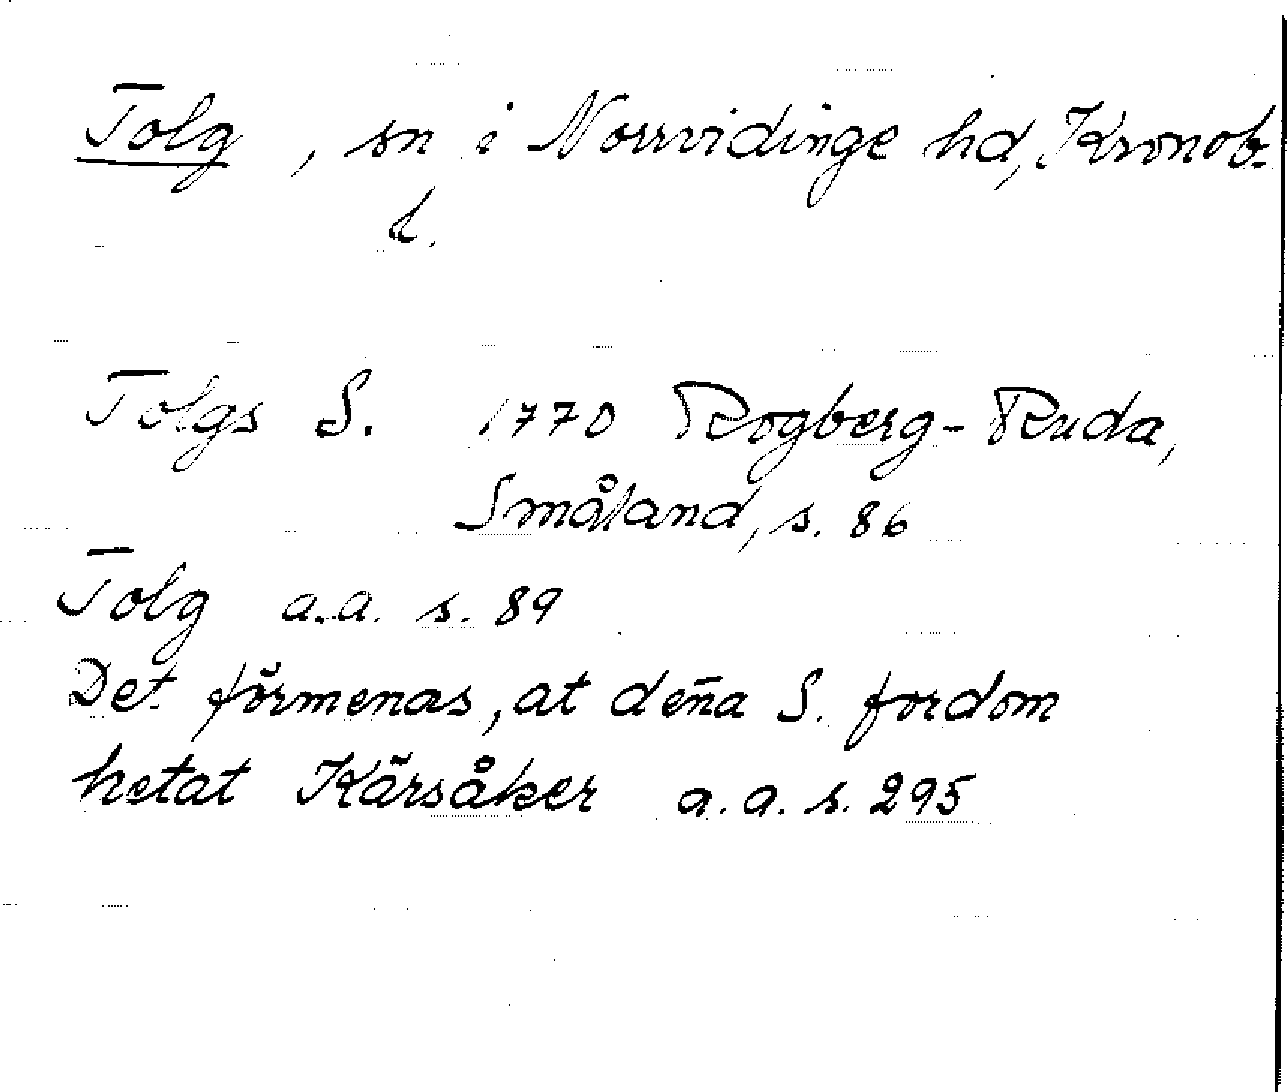 Tolg, sn i Norrvidinge hd, Kronob.
l.
Tolgs S. 1770 Rogberg-Ruda,
Småland, s. 86
Tolg a.a. s. 89
Det förmenas, at den̄a S. fordom
hetat Kärsåker a.a. s. 295